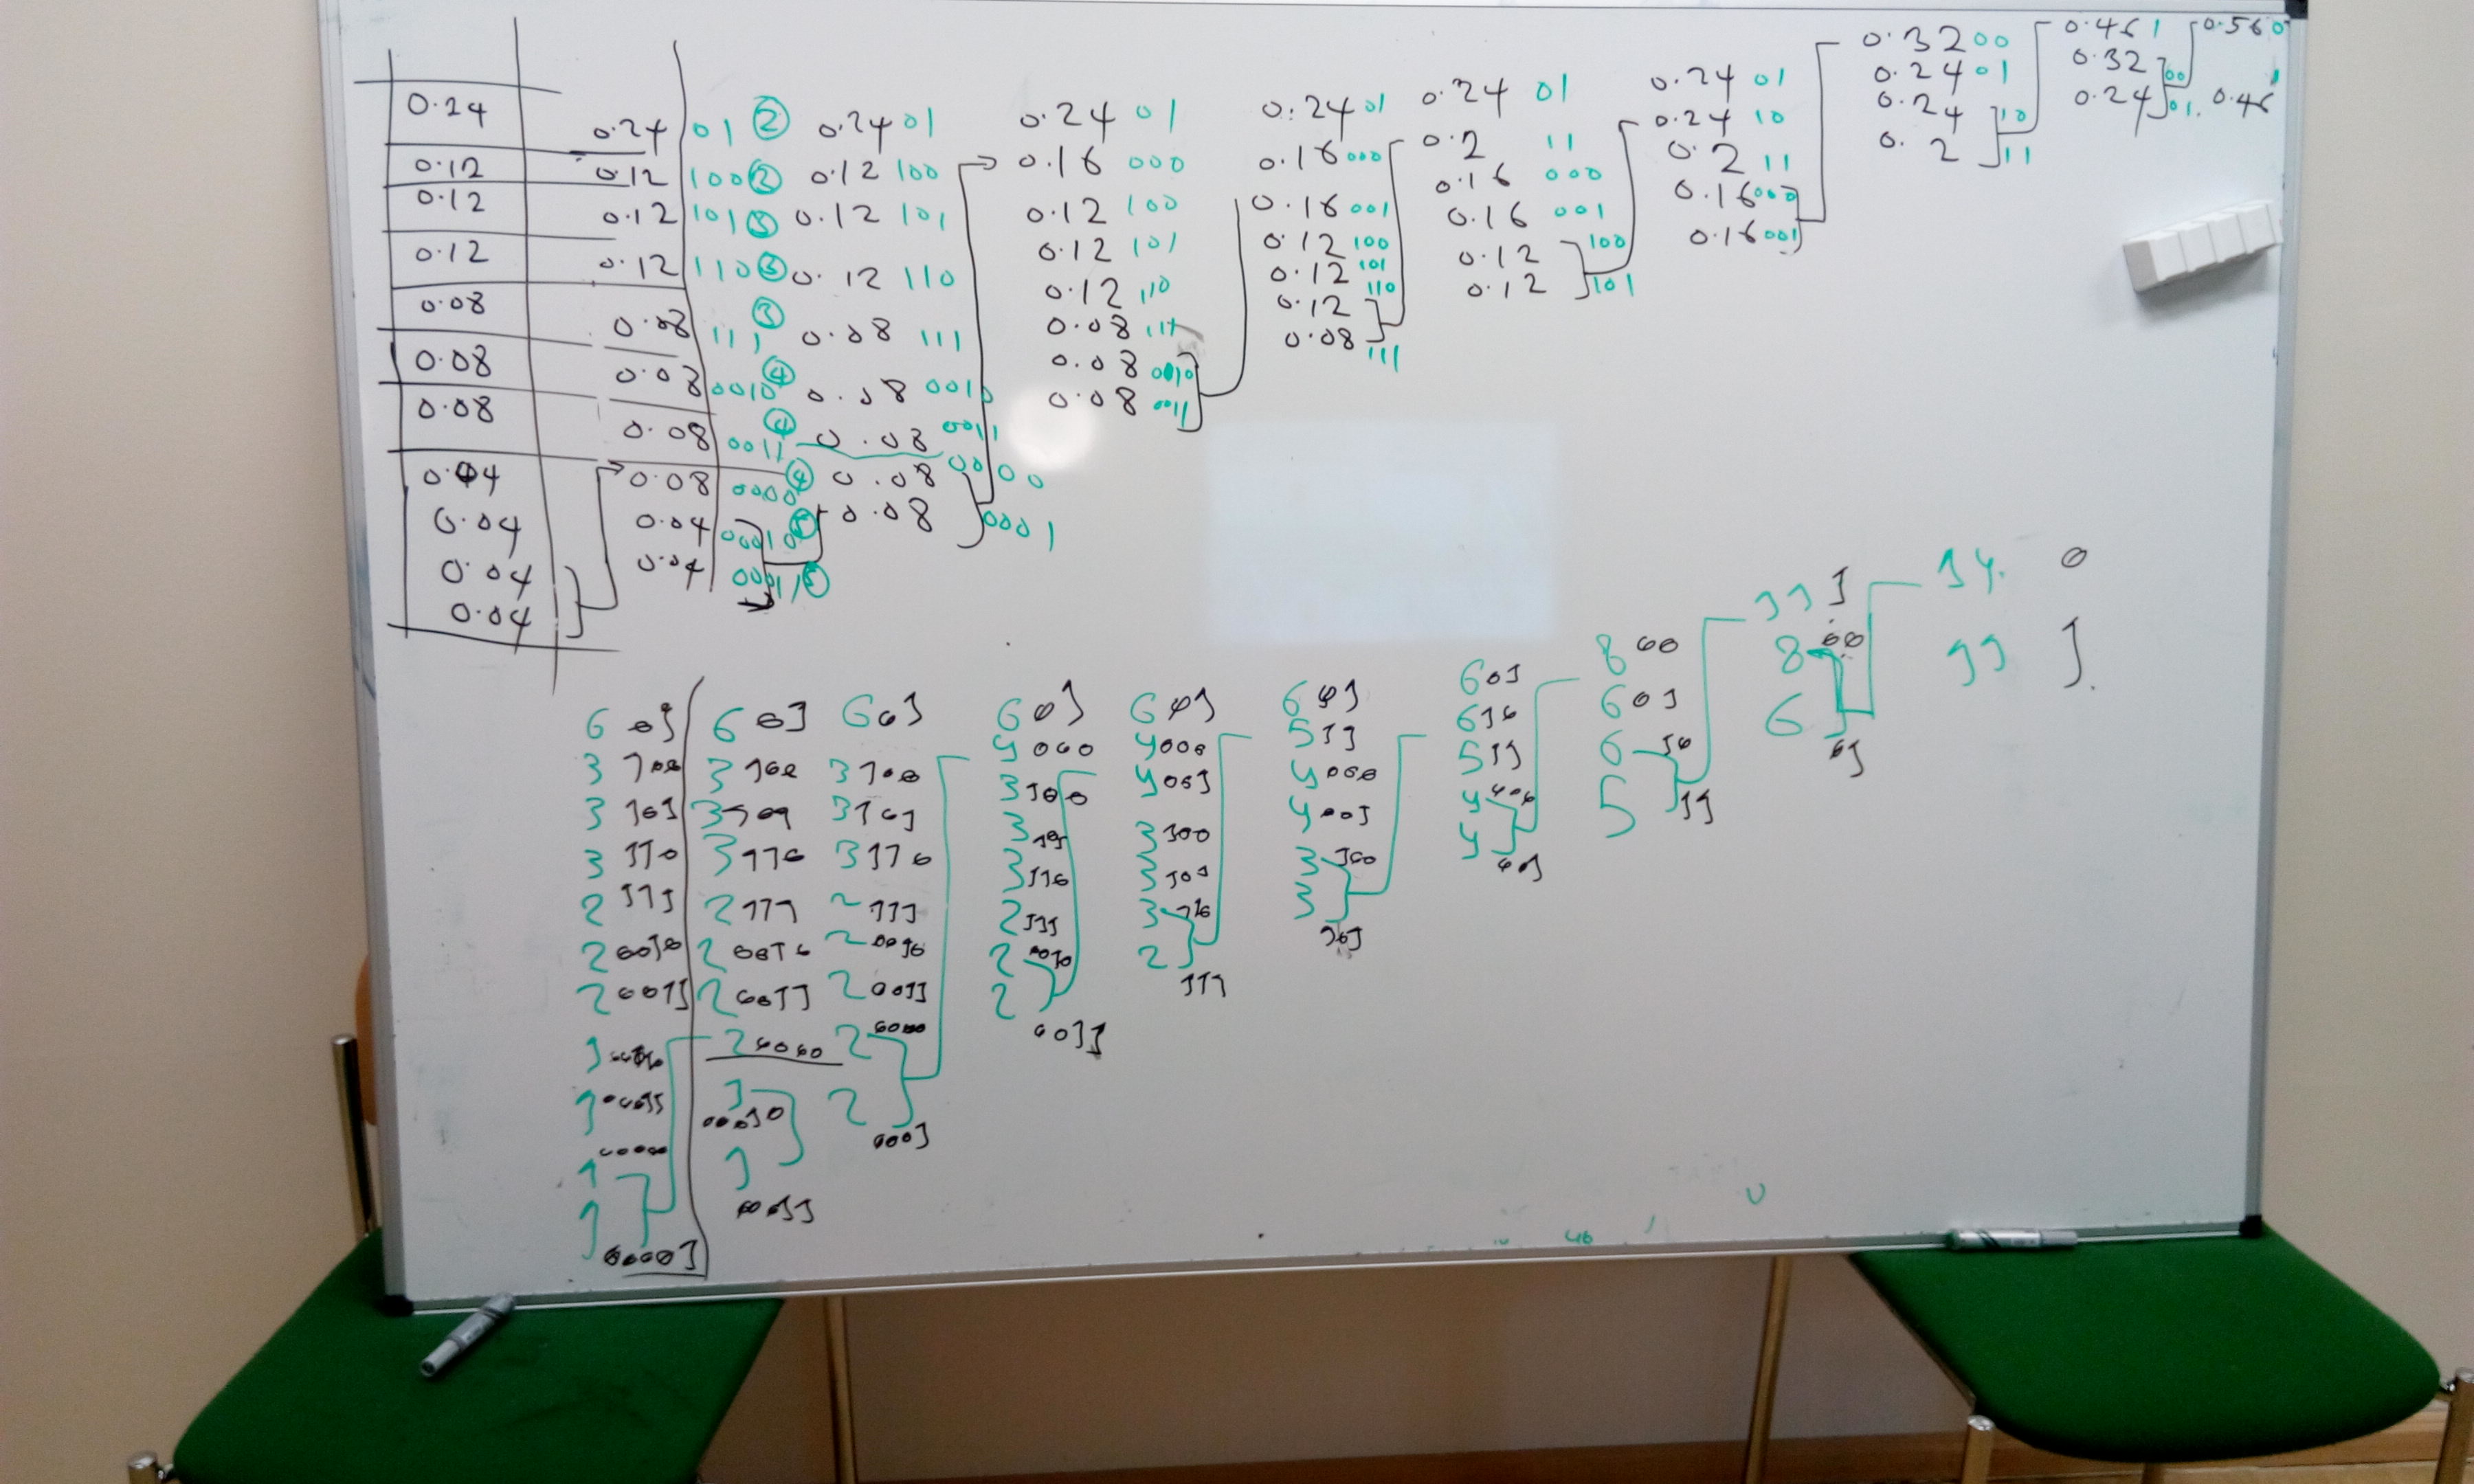 0.24
0.12
0.12
0.12
0.08
0.08
0.08
0.04
0.04
0.04
0.04
0.24 01 2
0.12 100
0.12 101
0.12 110 3
0.08 111 3
0.08 0010 4
0.08 0011 4
0.08 0000 4
0.04 00010
0.04
0.24 01
0.12 100
0.12 101
0.12 110
0.08 111
0.08 0010
0.08 0011
0.08 0000
0.08 0001
0.24 01
0.16 000
0.12 100
0.12 101
0.12 110
0.08 111
0.08 0010
0.08 0011
0.24 01
0.16 000
0.16 001
0.12 100
0.12 101
0.12 110
0.08 111
0.24 01
0.2 11
0.16 000
0.16 001
0.12 100
0.12 101
0.24 01
0.24 10
0.2 11
0.16 000
0.16 001
0.32 00
0.24 01
0.24 10
0.2 11
0.46 1
0.32 00
0.24 01
0.56 0
0.46 1
6 01
3 100
3 101
3 110
2 111
2 0010
2 0011
1
1
1 00000
1 00001
6 01
3 100
3
3 110
2 111
2 0010
2 0011
2 0000
1 00010
1
6 01
3 100
3 101
3 110
2 111
2 0010
2 0011
2 0000
2 0001
6 01
4 000
3 100
3
3 110
2 111
2 0010
2 0011
6 01
4 000
4 001
3 100
3 101
3 110
2 111
6 01
5 11
4 000
4 001
3 100
3 101
6 01
6 10
5 11
4 000
4 001
8 00
6 01
6 10
5 11
11 1
8 00
6 01
14 0
11 1